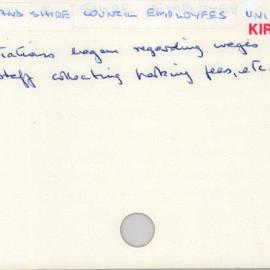 AND SHIRE COUNCIL EMPLOYEES UNI
KIR
tiations began regarding wages
staff collecting parking fees, etc.